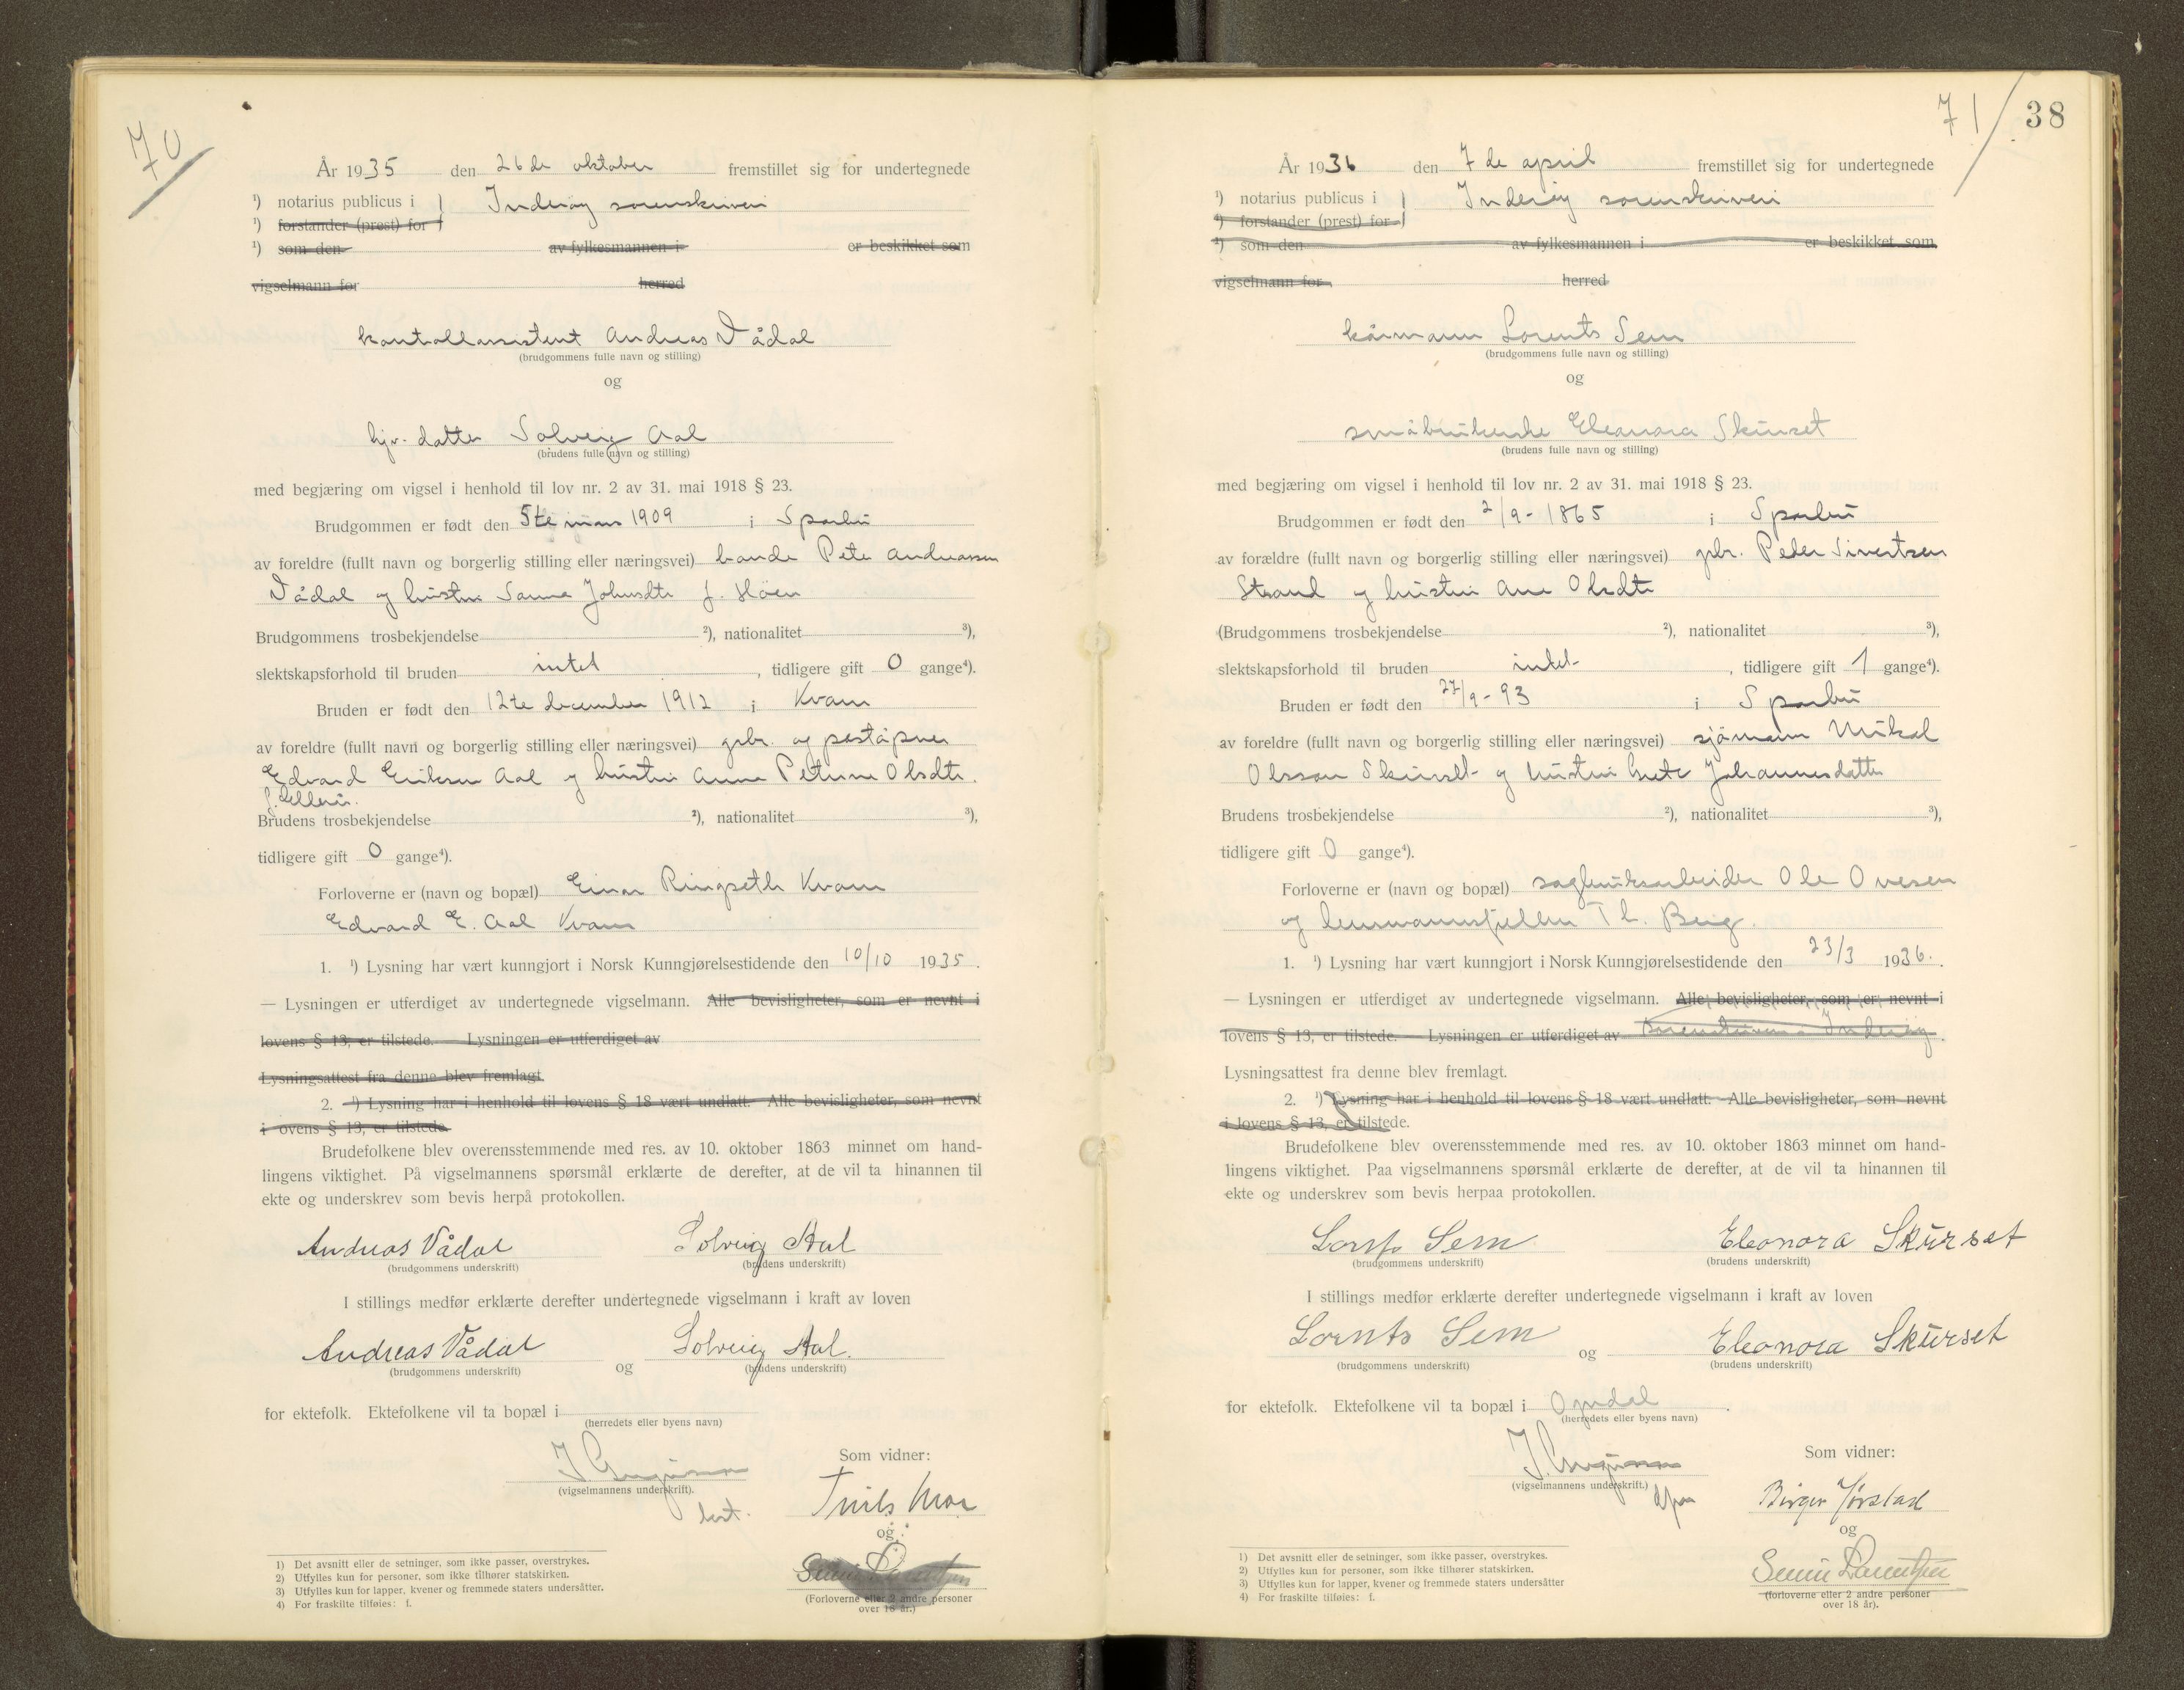 70
År 1935 den 26de oktober fremstillet sig for undertegnede
¹) notarius publicus i } Inderøy sorenskriveri
¹) forstander (prest) for
¹) som den av fylkesmannen i er beskikket som
vigselmann for herred
kontrollassistent Andreas Vådal
(brudgommens fulle navn og stilling)
og
hjv. datter Solveig Aal
(brudens fulle navn og stilling)
med begjæring om vigsel i henhold til lov nr. 2 av 31. mai 1918 § 23.
Brudgommen er født den 5te mars 1909 i Sparbu
av foreldre (fullt navn og borgerlig stilling eller næringsvei) bonde Peter Andreassen
Vådal og hustru Sanna Johnsdtr f. Høen
Brudgommens trosbekjendelse ²), nationalitet ³),
slektskapsforhold til bruden intet, tidligere gift 0 gange⁴).
Bruden er født den 12te december 1912 i Kvam
av foreldre (fullt navn og borgerlig stilling eller næringsvei) grbr. og poståpner
Edvard Eriksen Aal og hustru Anna Petrine Olsdtr.
Brudens trosbekjendelse ²), nationalitet ³),
tidligere gift 0 gange⁴).
Forloverne er (navn og bopæl) Einar Ringseth Kvam
Edvard E. Aal Kvam
1. ¹) Lysning har vært kunngjort i Norsk Kunngjørelsestidende den 10/10 1935.
— Lysningen er utferdiget av undertegnede vigselmann. Alle bevisligheter, som er nevnt i
lovens § 13, er tilstede. Lysningen er utferdiget av
Lysningsattest fra denne blev fremlagt.
2. ¹) Lysning har i henhold til lovens § 18 vært undlatt. Alle bevisligheter, som nevnt
i ovens § 13, er tilstede.
Brudefolkene blev overensstemmende med res. av 10. oktober 1863 minnet om hand-
lingens viktighet. På vigselmannens spørsmål erklærte de derefter, at de vil ta hinannen til
ekte og underskrev som bevis herpå protokollen.
Andreas Vådal Solveig Aal
(brudgommens underskrift) (brudens underskrift)
I stillings medfør erklærte derefter undertegnede vigselmann i kraft av loven
Andreas Vådal og Solveig Aal.
(brudgommens underskrift) (brudens underskrift)
for ektefolk. Ektefolkene vil ta bopæl i
(herredets eller byens navn)
Som vidner:
(vigselmannens underskrift).
og
(Forloverne eller 2 andre personer
over 18 år.)
1) Det avsnitt eller de setninger, som ikke passer, overstrykes.
2) Utfylles kun for personer, som ikke tilhører statskirken.
3) Utfylles kun for lapper, kvener og fremmede staters undersåtter.
4) For fraskilte tilføies: f.
71 38
År 1936 den 7de april fremstillet sig for undertegnede
¹) notarius publicus i } Inderøy sorenskriveri
¹) forstander (prest) for
¹) som den av fylkesmannen i er beskikket som
vigselmann for herred
kårmann Lorents Sem
(brudgommens fulle navn og stilling)
og
småbrukerske Eleanora Skurset
(brudens fulle navn og stilling)
med begjæring om vigsel i henhold til lov nr. 2 av 31. mai 1918 § 23.
Brudgommen er født den 2/9- 1865 i Sparbu
av forældre (fullt navn og borgerlig stilling eller næringsvei) gbr. Peder Sivertsen
Strand og hustru Ane Olsdtr
(Brudgommens trosbekjendelse ²), nationalitet ³),
slektskapsforhold til bruden intet, tidligere gift 1 gange⁴).
Bruden er født den 27/9- 93 i Sparbu
av foreldre (fullt navn og borgerlig stilling eller næringsvei) sjømann Mikal
Olsson Skurset og hustru Grete Johannesdatter
Brudens trosbekjendelse ²), nationalitet ³),
tidligere gift 0 gange⁴).
Forloverne er (navn og bopæl) sagbruksarbeider Ole Ovesen
og lensmannsfullm Th. Berg.
1. ¹) Lysning har vært kunngjort i Norsk Kunngjørelsestidende den 23/3 1936.
— Lysningen er utferdiget av undertegnede vigselmann. Alle bevisligheter, som er nevnt i
lovens § 13, er tilstede. Lysningen er utferdiget av Sorenskriveren i Inderøy.
Lysningsattest fra denne blev fremlagt.
2. ¹) Lysning har i henhold til lovens § 18 vært undlatt. Alle bevisligheter, som nevnt
i lovens § 13, er tilstede.
Brudefolkene blev overensstemmende med res. av 10. oktober 1863 minnet om hand-
lingens viktighet. Paa vigselmannens spørsmål erklærte de derefter, at de vil ta hinannen til
ekte og underskrev som bevis herpaa protokollen.
Lornts Sem Eleonora Skurset
(brudgommens underskrift) (brudens underskrift)
I stillings medfør erklærte derefter undertegnede vigselmann i kraft av loven
Lornts Sem og Eleonora Skurset
(brudgommens underskrift) (brudens underskrift)
for ektefolk. Ektefolkene vil ta bopæl i Ogndal.
(herredets eller byens navn)
Som vidner:
(vigselmannens underskrift.)
Birger Jørstad
og
(forloverne eller 2 andre personer
over 18 år).
1) Det avsnitt eller de setninger, som ikke passer, overstrykes.
2) Utfylles kun for personer, som ikke tilhører statskirken.
3) Utfylles kun for lapper, kvener og fremmede staters undersåtter
4) For fraskilte tilføies: f.